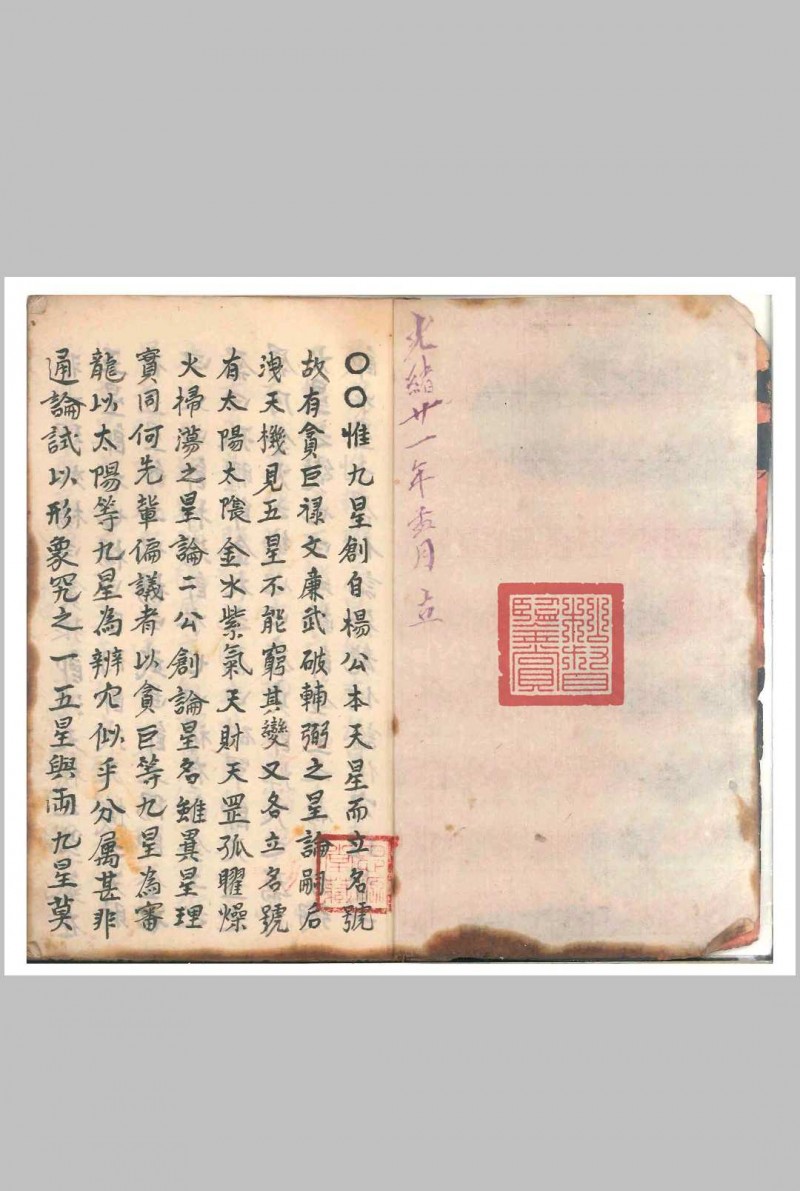 光緒廿一年杏月立
〇〇惟九星創自楊公本天星而立名號
故有貪巨祿文廉武破輔弼之星論嗣后
洩天機見五星不能窮其變又各立名號
有太陽太陰金水紫氣天財天罡孤曜燥
火掃蕩之星論二公創論星名雖異星理
實同何先輩偏議者以貪巨等九星為審
龍以太陽等九星為辨穴似乎分属甚非
通論試以形象究之一五星與兩九星莫